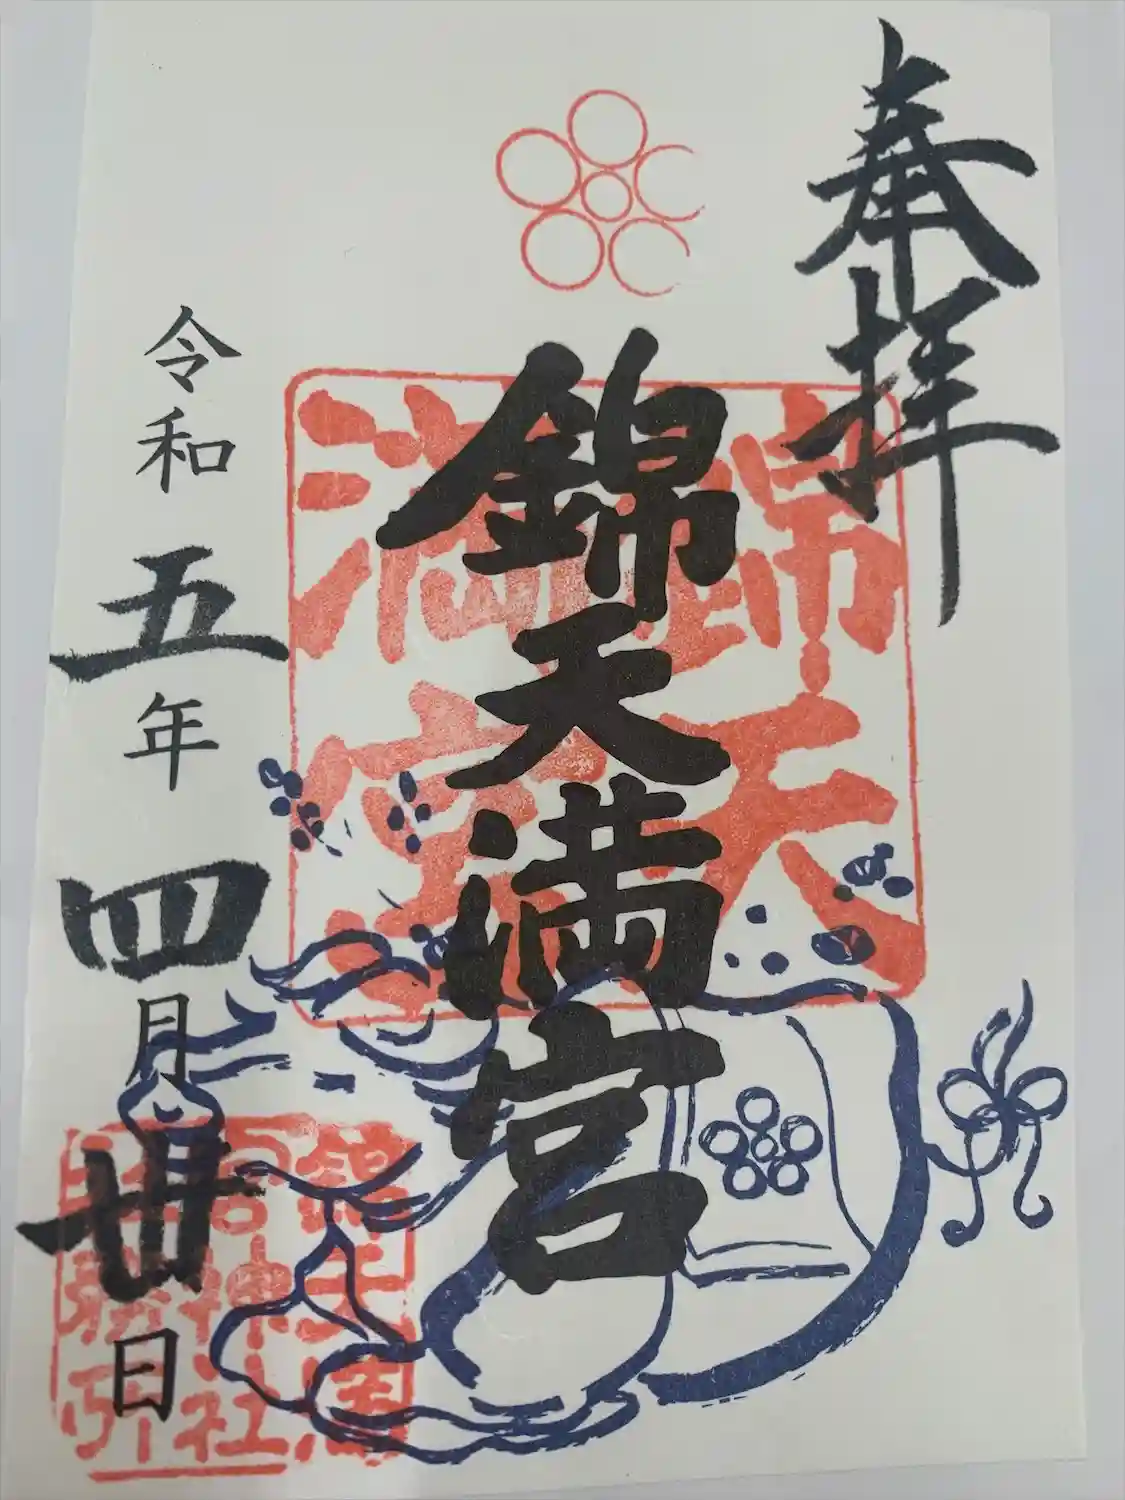 奉拝
錦天満宮
錦天満宮
令和五年四月廿日
錦天満宮神社務所